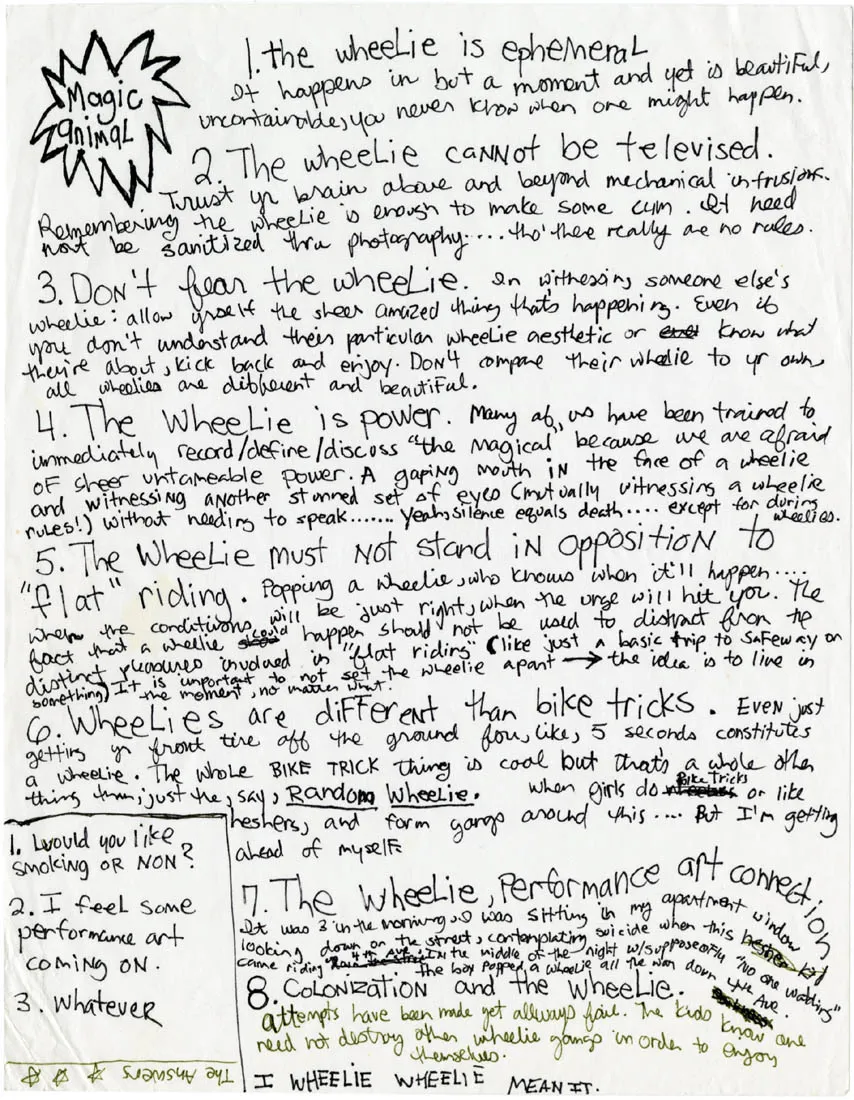 Magic
animal
1. the wheelie is ephemeral
It happens in but a moment and yet is beautiful,
uncontainable, you never know when one might happen.
2. The wheelie cannot be televised.
Trust yr brain above and beyond mechanical intrusions.
Remembering the wheelie is enough to make some cum. It need
not be sanitized thru photography.... tho' there really are no rules.
3. Don't fear the wheelie. In witnessing someone else's
wheelie: allow yrself the sheer amazed thing that's happening. Even if
you don't understand their particular wheelie aesthetic or know what
they're about, kick back and enjoy. Don't compare their wheelie to yr own,
all wheelies are different and beautiful.
4. The Wheelie is power. Many of us have been trained to
immediately record/define/discuss "the magical" because we are afraid
of sheer untameable power. A gaping mouth in the face of a wheelie
and witnessing another stunned set of eyes (mutually witnessing a wheelie
rules!) without needing to speak....... Yeah, silence equals death.... except for during
wheelies.
5. The Wheelie must not stand in opposition to
"flat" riding. Popping a wheelie, who knows when it'll happen....
when the conditions will be just right, when the urge will hit you. The
fact that a wheelie could happen should not be used to distract from the
distinct pleasures involved in "flat riding" (like just a basic trip to Safeway or
something) It is important to not set the wheelie apart → the idea is to live in
the moment, no matter what.
6. Wheelies are different than bike tricks. Even just
getting yr front tire off the ground for, like, 5 seconds constitutes
a wheelie. The whole BIKE TRICK thing is cool but that's a whole other
thing than, just the, say, Random Wheelie. When girls do Bike Tricks or like
heshers, and form gangs around this.... But I'm getting
ahead of myself.
7. The Wheelie, Performance art connection
It was 3 in the morning, I was sitting in my apartment window
looking down on the street, contemplating suicide when this hesher kid
came riding 4th Ave. In the middle of the night w/supposedly "no one watching"
The boy popped a wheelie all the way down 4th Ave.
8. Colonization and the wheelie.
attempts have been made yet allways fail. The kids know one
need not destroy other wheelie gangs in order to enjoy
themselves.
I WHEELIE WHEELIE MEAN IT.
1. Would you like
smoking OR NON?
2. I feel some
performance art
coming on.
3. Whatever
The Answers